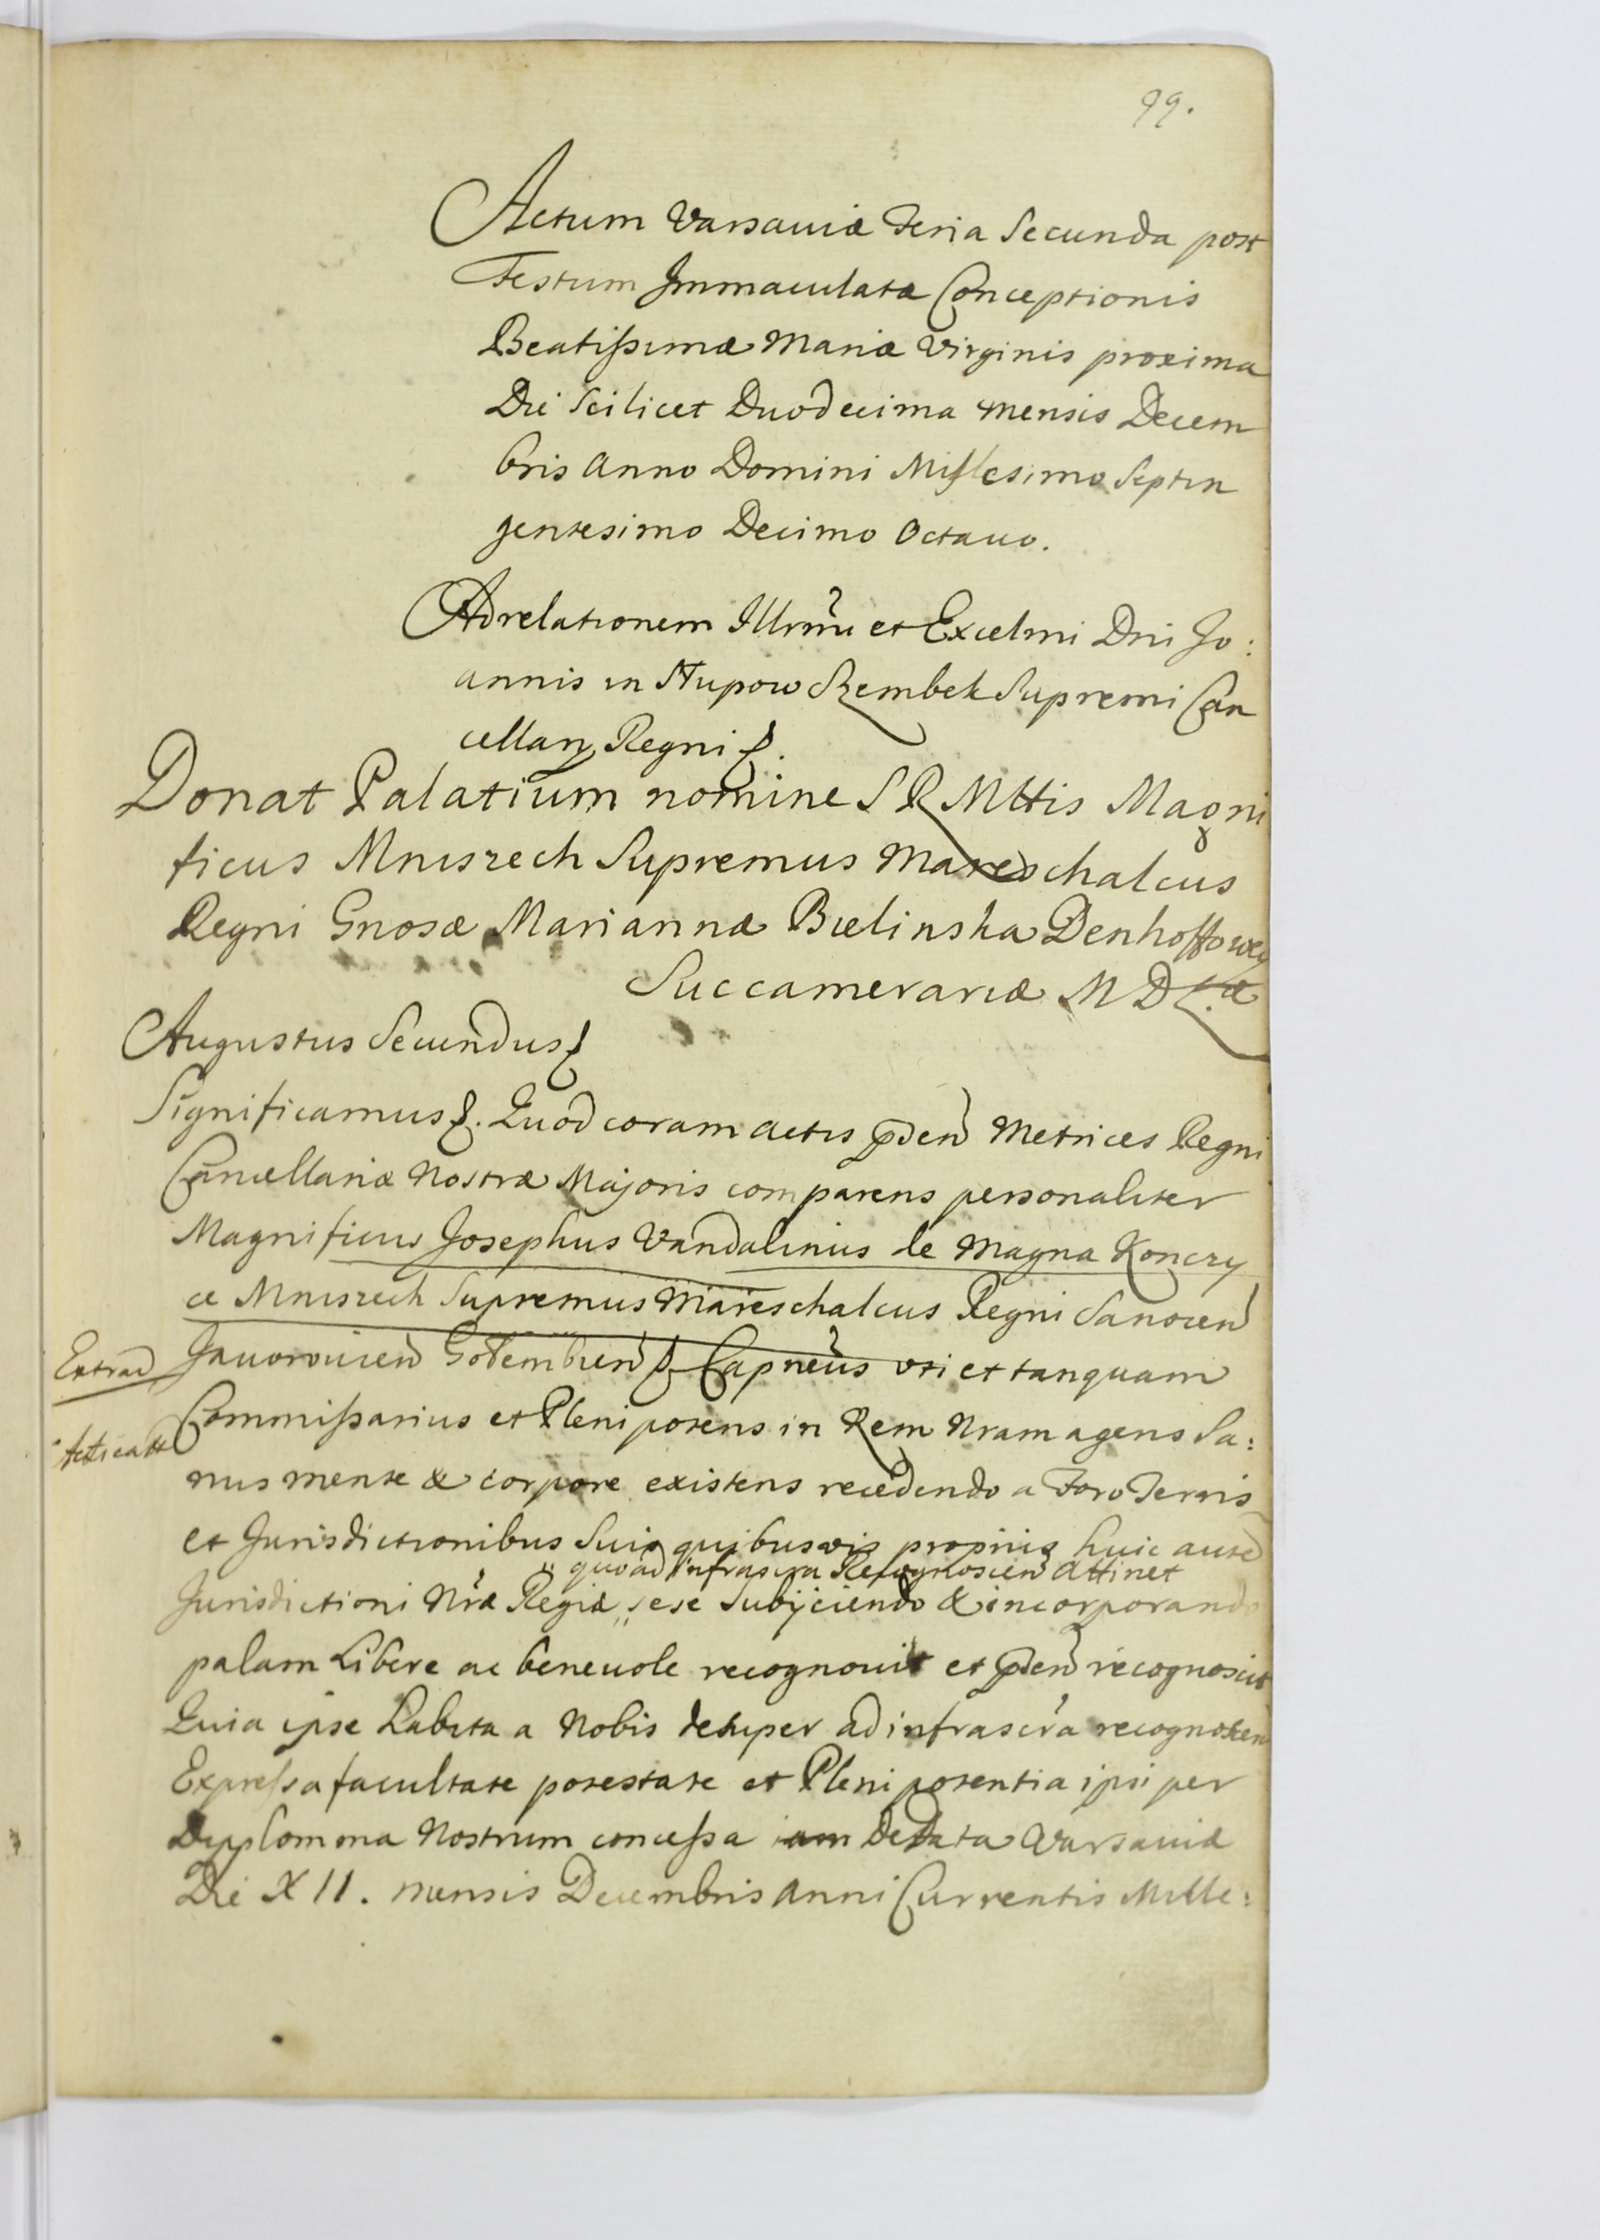 99.
Actum Varsaviæ Feria Secunda post
Festum Immaculatæ Conceptionis
Beatissimæ Mariæ Virginis proxima
Die scilicet Duodecima mensis Decem
bris Anno Domini Millesimo Septin
gentesimo Decimo Octavo.
Ad relationem Illrmi et Excelmi Dni Jo:
annis in Słupow Szembek Supremi Can
cellarij Regni
Donat Palatium nomine S R Mttis Magni
ficus Mniszech Supremus Mareschalcus
Regni Gnosæ Mariannæ Bielinska Denhoffowey
Succamerariæ M D L.æ
Augustus Secundus
Significamus. Quod coram actis pnden Metrices Regni
Cancellariæ Nostræ Majoris comparens personaliter
Magnificus Josephus Vandalinus de Magna Konczy
ce Mniszech Supremus Mareschalcus Regni Sanocen
Extrad Javorovien Golembien Capneus uti et tanquam
Commissarius et Plenipotens in Rem Nram agens Sa:
nus mente & corpore existens recedendo a Foro Terris
et Jurisdictionibus Suis quibusvis propriis huic aute
quoad infrascra Recognoscen attinet
Jurisdictioni Nræ Regiæ sese subijciendo & incorporando
palam Libere ac benevole recognovit et pnden recognoscit
Quia ipse habita a Nobis desuper ad infrascra recognoscen
Expressa facultate potestate et Plenipotentia ipsi per
Dyplomma Nostrum concessa iam de Data Varsaviæ
Die XII. mensis Decembris Anni Currentis Mille: